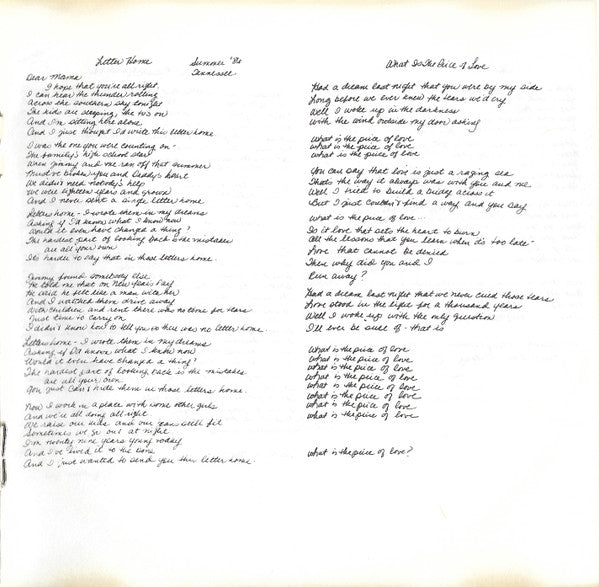 Letter Home
Summer '86
Tennessee
Dear Mama
I hope that you're all right.
I can hear the thunder rolling
Across the southern sky tonight
The kids are sleeping, the tv's on
And I'm sitting here alone
And I just thought I'd write this letter home
I was the one you were counting on -
The family's high school star
When Jimmy and me ran off that summer
Must've broke you and Daddy's heart
We didn't need nobody's help
We were eighteen years and grown
And I never sent a single letter home
Letters home - I wrote them in my dreams
Asking if I'd known what I know now
Would it ever have changed a thing?
The hardest part of looking back is the mistakes
are all your own
It's harder to say that in those letters home.
Jimmy found somebody else
He told me that on New Year's Day
He said he felt like a man with her
And I watched them drive away
With children and rent there was no time for tears
Just time to carry on
I didn't know how to tell you so there was no letter home.
Letters home - I wrote them in my dreams
Asking if I'd known what I know now
Would it ever have changed a thing?
The hardest part of looking back is the mistakes
are all your own
You just can't write them in those letters home.
Now I work in a place with some other girls
And we're all doing all right
We raise our kids and our jeans still fit
Sometimes we go out at night
I'm twenty nine years young today
And I've lived it to the bone
And I just wanted to send you this letter home.
What Is The Price of Love
Had a dream last night that you were by my side
Long before we ever knew the tears we'd cry
Well I woke up in the darkness
With the wind outside my door asking
What is the price of love
what is the price of love
what is the price of love
You can say that love is just a raging sea
That's the way it always was with you and me
Well I tried to build a bridge across it
But I just couldn't find a way and you say
What is the price of love...
Is it love that sets the heart to burn
All the lessons that you learn when it's too late -
Love that cannot be denied
Then why did you and I
Run away?
Had a dream last night that we never cried those tears
Love stood in the light for a thousand years
Well I woke up with the only question
I'll ever be sure of - that is
What is the price of love
what is the price of love
what is the price of love
what is the price of love
what is the price of love
what is the price of love
what is the price of love
what is the price of love
what is the price of love?